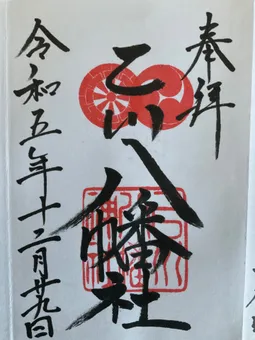 奉拝
乙川八幡社
令和五年十二月廿九日